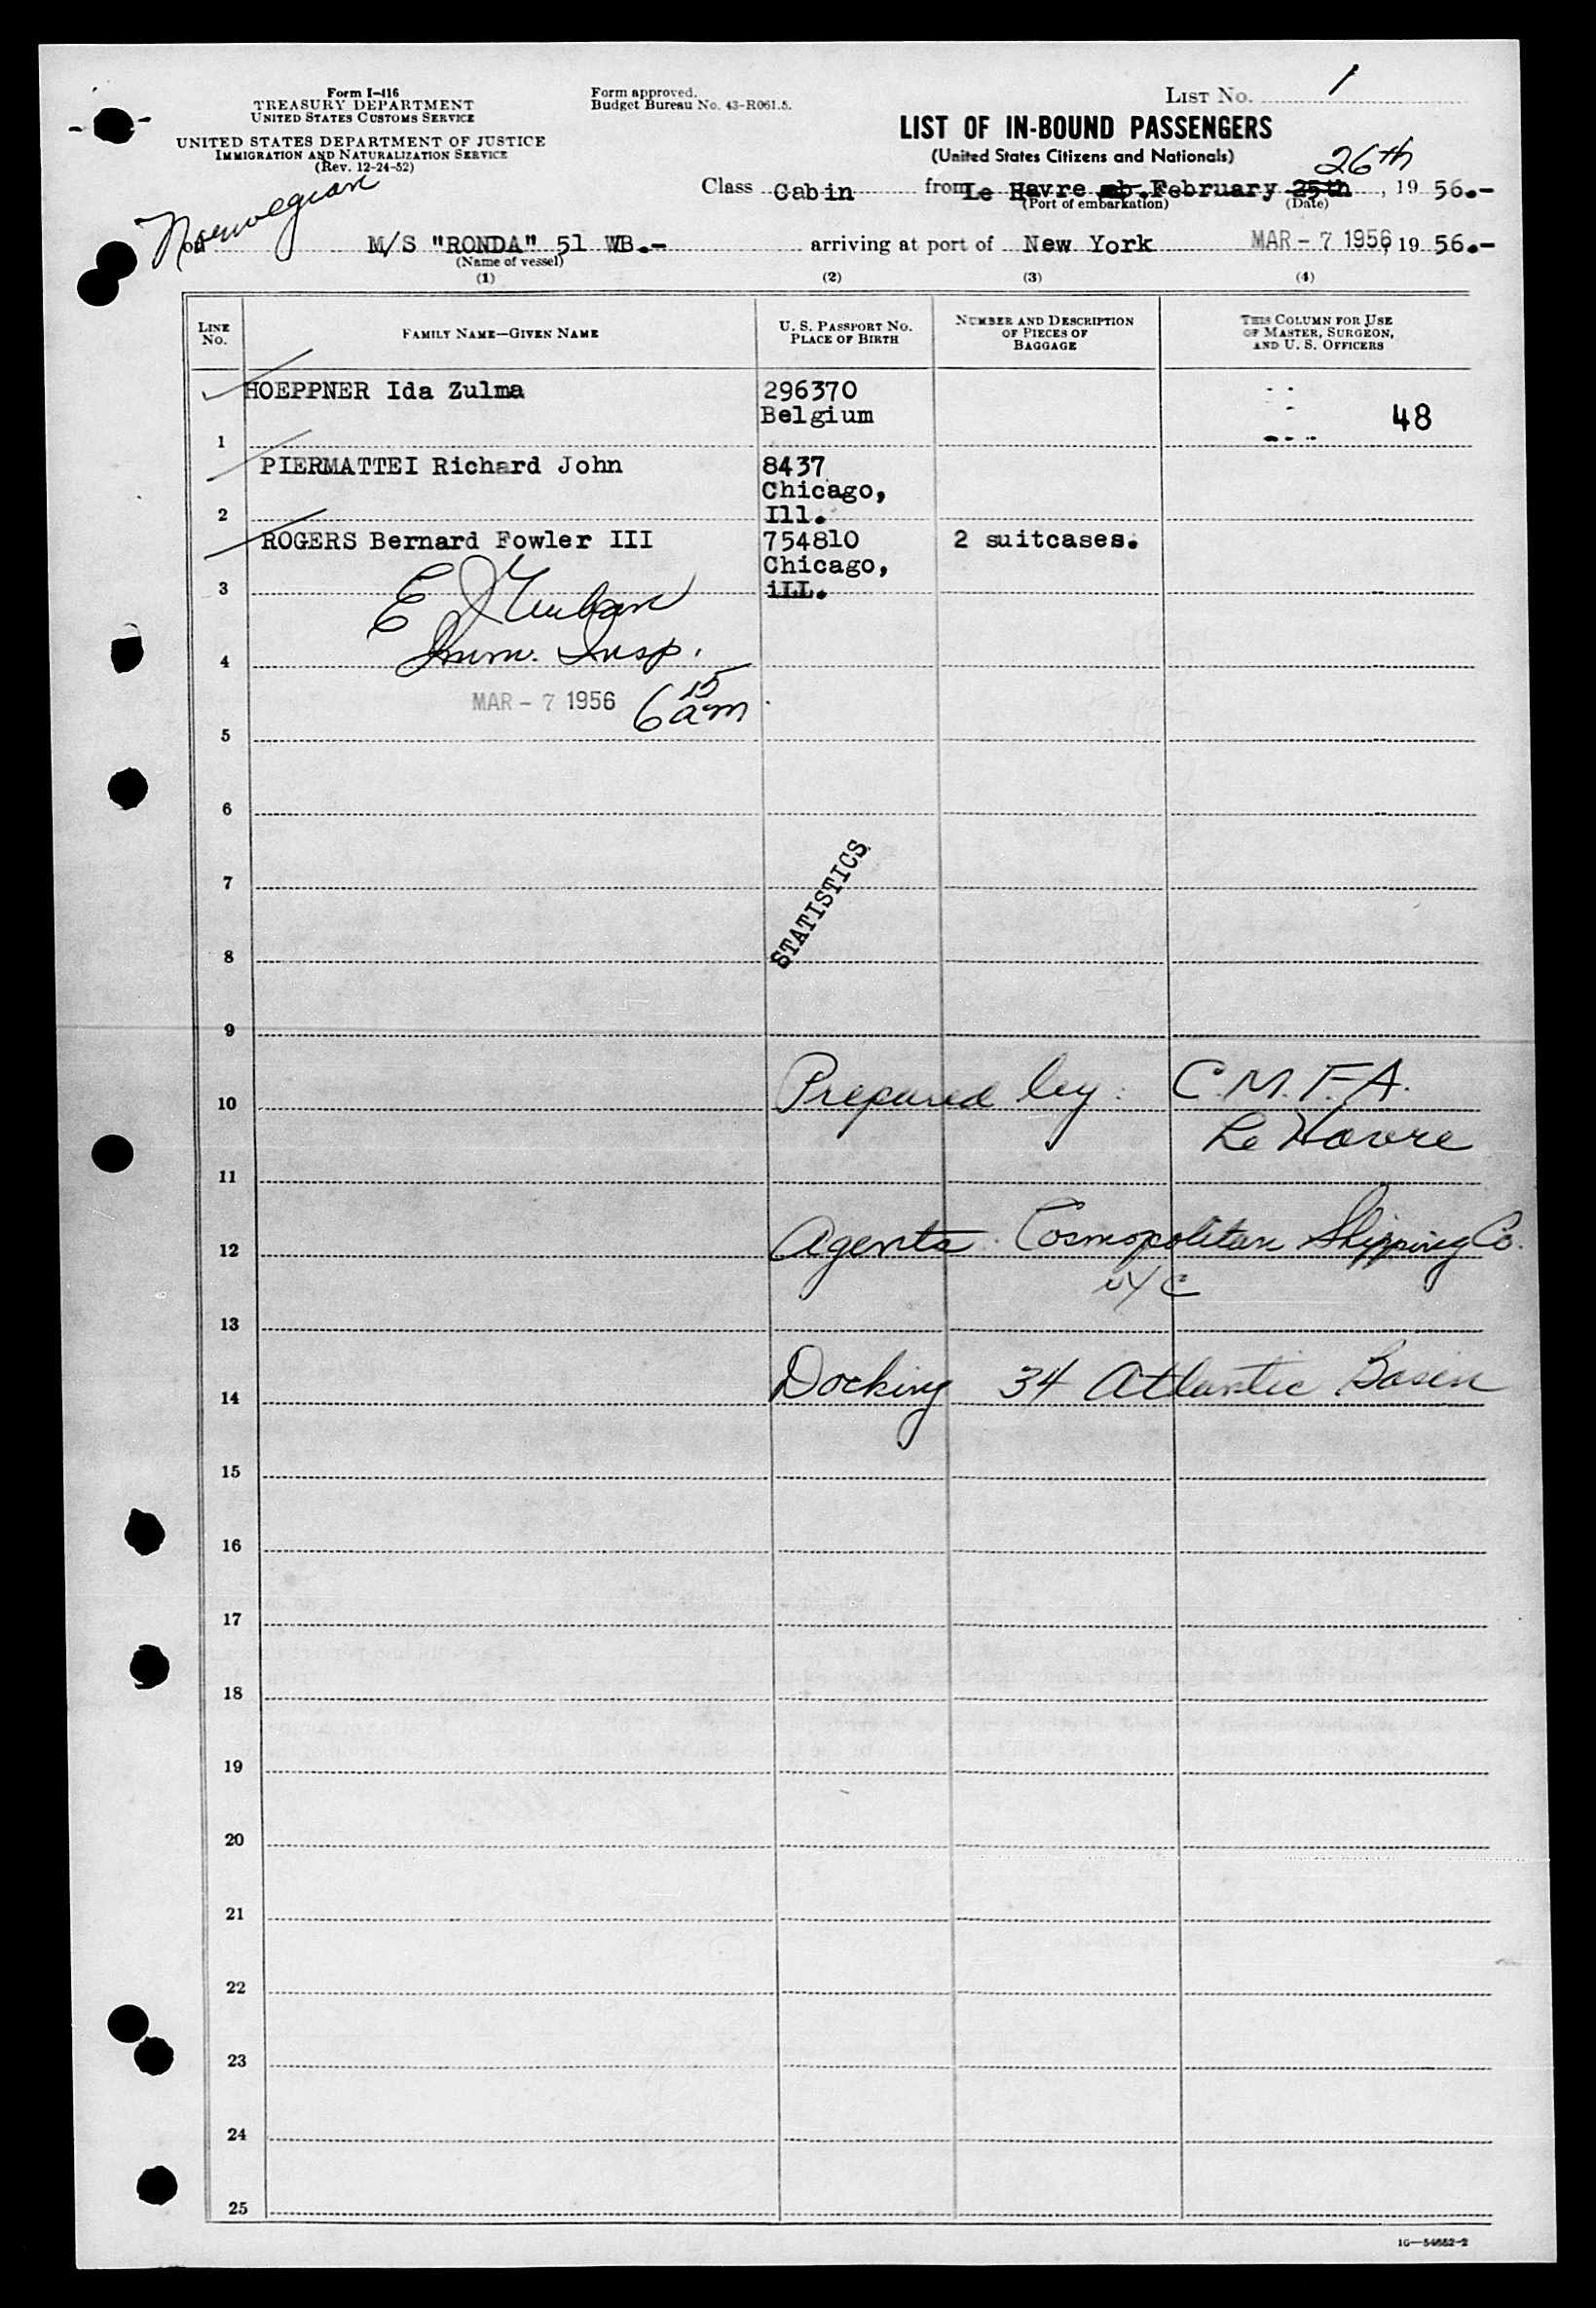 Form I-416
TREASURY DEPARTMENT
UNITED STATES CUSTOMS SERVICE
UNITED STATES DEPARTMENT OF JUSTICE
IMMIGRATION AND NATURALIZATION SERVICE
(Rev. 12-24-52)
Form approved.
Budget Bureau No. 43-R061.5.
LIST No. 1
LIST OF IN-BOUND PASSENGERS
(United States Citizens and Nationals)
26th
Class Cabin from Le Havre February 25th, 19 56.-
(Port of embarkation) (Date)
Norwegian
on M/S "RONDA" 51 WB.- arriving at port of New York MAR - 7 1956, 19 56.-
(Name of vessel)
(1) (2) (3) (4)
LINE No. FAMILY NAME—GIVEN NAME U. S. PASSPORT No. PLACE OF BIRTH NUMBER AND DESCRIPTION OF PIECES OF BAGGAGE THIS COLUMN FOR USE OF MASTER, SURGEON, AND U. S. OFFICERS
HOEPPNER Ida Zulma 296370
Belgium 48
1
PIERMATTEI Richard John 8437
Chicago,
2 Ill.
ROGERS Bernard Fowler III 754810 2 suitcases.
Chicago,
3 iLL.
E
Imm. Insp.
4
MAR - 7 1956 6 15 am
5
6
7
STATISTICS
8
9
10 Prepared by: C.M.F.A.
Le Havre
11
12 Agents. Cosmopolitan Shipping Co.
NYC
13
14 Docking 34 Atlantic Basin
15
16
17
18
19
20
21
22
23
24
25
16—54652-2